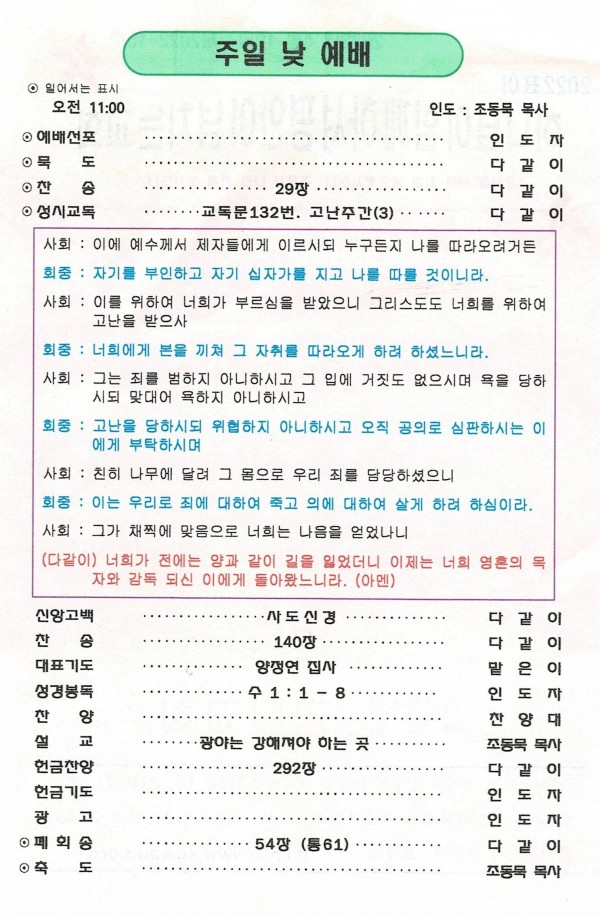 주일 낮 예배
⊙ 일어서는 표시
오전 11:00 인도 : 조동묵 목사
⊙ 예배선포 ········ 인 도 자
⊙ 묵 도 ········ 다 같 이
⊙ 찬 송 ········ 29장 ········ 다 같 이
⊙ 성시교독 ········ 교독문132번. 고난주간(3) ········ 다 같 이
사회 : 이에 예수께서 제자들에게 이르시되 누구든지 나를 따라오려거든
회중 : 자기를 부인하고 자기 십자가를 지고 나를 따를 것이니라.
사회 : 이를 위하여 너희가 부르심을 받았으니 그리스도도 너희를 위하여
고난을 받으사
회중 : 너희에게 본을 끼쳐 그 자취를 따라오게 하려 하셨느니라.
사회 : 그는 죄를 범하지 아니하시고 그 입에 거짓도 없으시며 욕을 당하
시되 맞대어 욕하지 아니하시고
회중 : 고난을 당하시되 위협하지 아니하시고 오직 공의로 심판하시는 이
에게 부탁하시며
사회 : 친히 나무에 달려 그 몸으로 우리 죄를 담당하셨으니
회중 : 이는 우리로 죄에 대하여 죽고 의에 대하여 살게 하려 하심이라.
사회 : 그가 채찍에 맞음으로 너희는 나음을 얻었나니
(다같이) 너희가 전에는 양과 같이 길을 잃었더니 이제는 너희 영혼의 목
자와 감독 되신 이에게 돌아왔느니라. (아멘)
신앙고백 ········ 사도신경 ········ 다 같 이
찬 송 ········ 140장 ········ 다 같 이
대표기도 ········ 양정연 집사 ········ 맡 은 이
성경봉독 ········ 수 1 : 1 - 8 ········ 인 도 자
찬 양 ········ 찬 양 대
설 교 ········ 광야는 강해져야 하는 곳 ········ 조동묵 목사
헌금찬양 ········ 292장 ········ 다 같 이
헌금기도 ········ 인 도 자
광 고 ········ 인 도 자
⊙ 폐 회 송 ········ 54장 (통61) ········ 다 같 이
⊙ 축 도 ········ 조동묵 목사